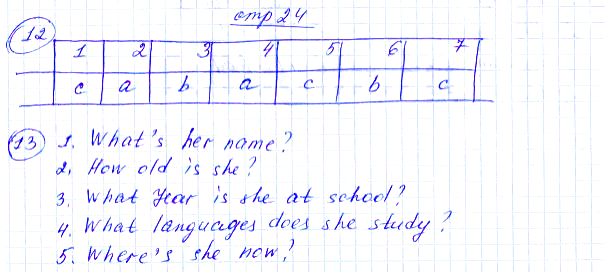 стр 24
12
1 2 3 4 5 6 7
c a b a c b c
13 1. What's her name?
2. How old is she?
3. What year is she at school?
4. What languages does she study?
5. Where's she now?